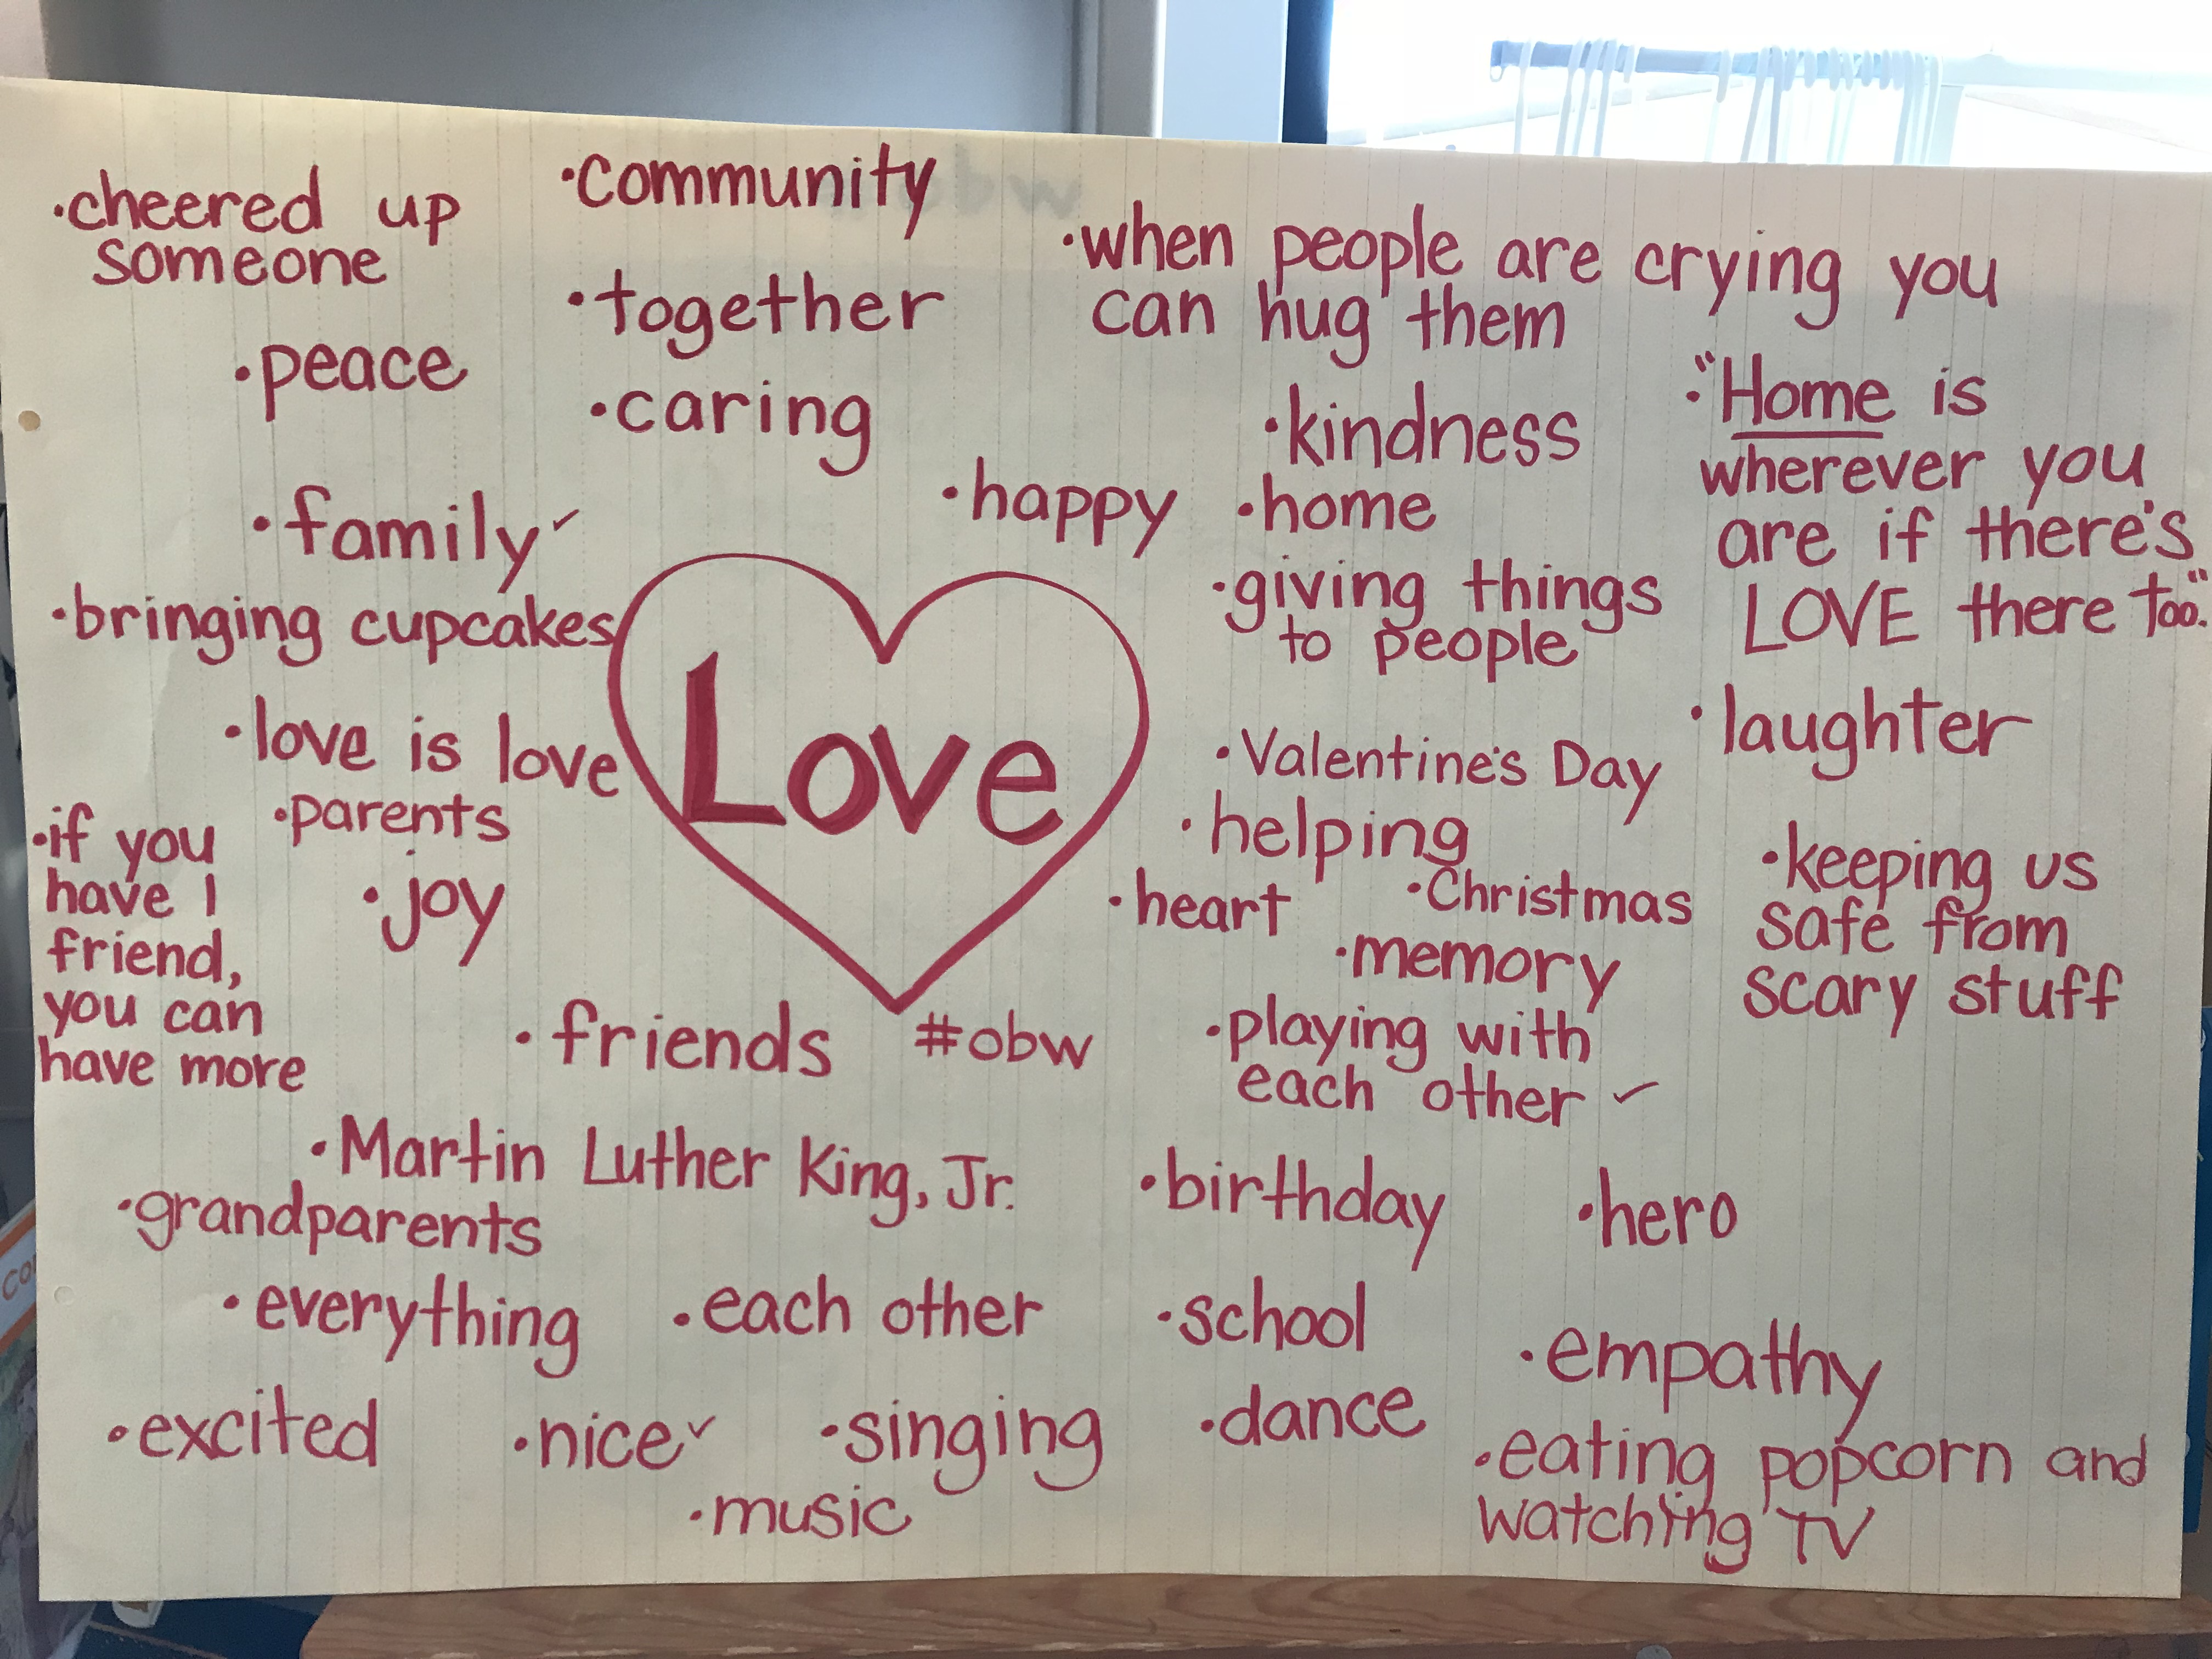 ·cheered up
someone
·community
·when people are crying you
can hug them
·together
·peace
·caring
·kindness
·"Home is
wherever you
are if there's
LOVE there too."
·happy
·home
·family✓
·giving things
to people
·bringing cupcakes
Love
·love is love
·laughter
·Valentine's Day
·parents
·helping
·if you
have 1
friend,
you can
have more
·joy
·heart
·Christmas
·keeping us
safe from
scary stuff
·memory
·friends
#obw
·playing with
each other ✓
·Martin Luther King, Jr.
·birthday
·hero
·grandparents
·everything
·each other
·school
·empathy
·excited
·nice✓
·singing
·dance
·eating popcorn and
watching TV
·music